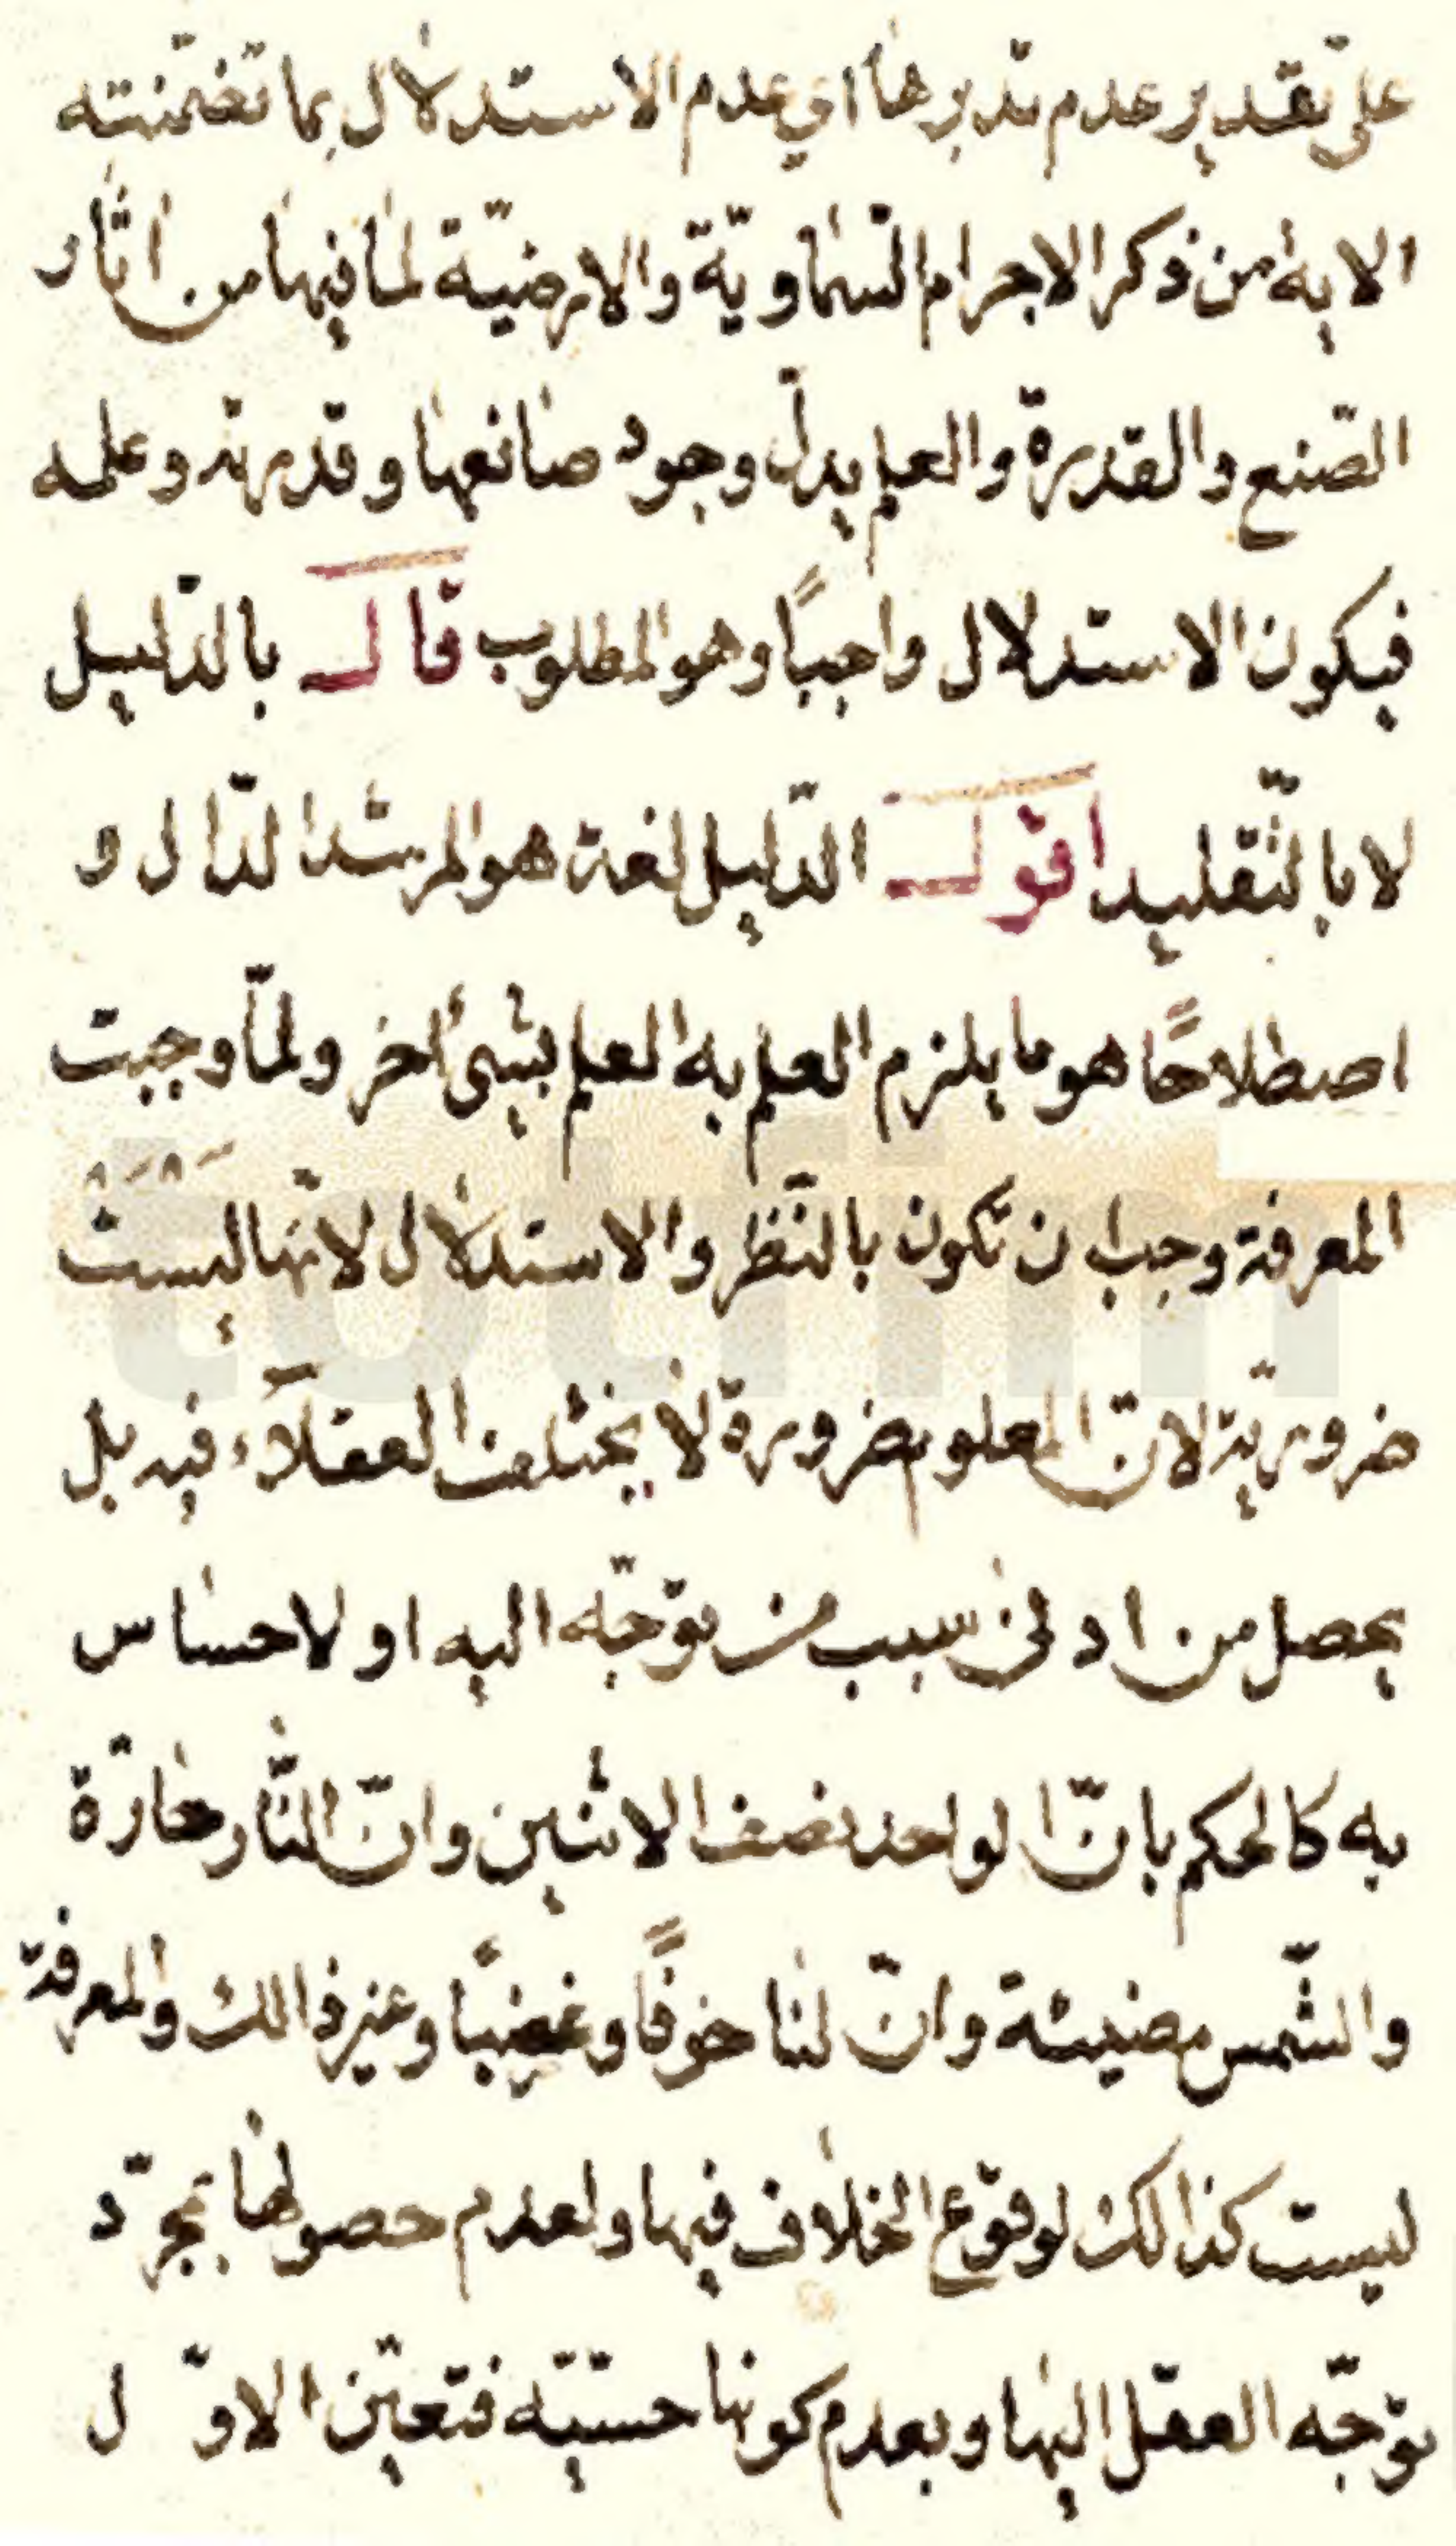 على تقدير عدم تدبرها اي عدم الاستدلال بما تضمّنته
الاية من ذكر الاجرام السّماويّة والارضيّة لما فيها من اثار
الصّنع والقدرة والعلم يدلّ وجود صانعها وقدرته وعلمه
فيكون الاستدلال واجبًا وهو المطلوب قال بالدّليل
لا بالتّقليد اقول الدّليل لغة هو المرشد الدّال و
اصطلاحًا هو ما يلزم العلم به العلم بشئ اخر ولمّا وجبت
المعرفة وجب ان تكون بالنّظر والاستدلال لانّها ليست
ضروريّة لانّ المعلوم ضرورة لا يختلف العقلآء فيه بل
يحصل من ادنى سبب من توجّه اليه او لاحساس
به كالحكم بانّ الواحد نصف الاثنين وانّ النّار حارّة
والشّمس مضيئة وانّ لنا خوفًا وغضبًا وغير ذالك والمعرفة
ليست كذالك لوقوع الخلاف فيها ولعدم حصولها بمجرّد
توجّه العقل اليها وبعدم كونها حسّيّه فتعيّن الاوّل
totfim